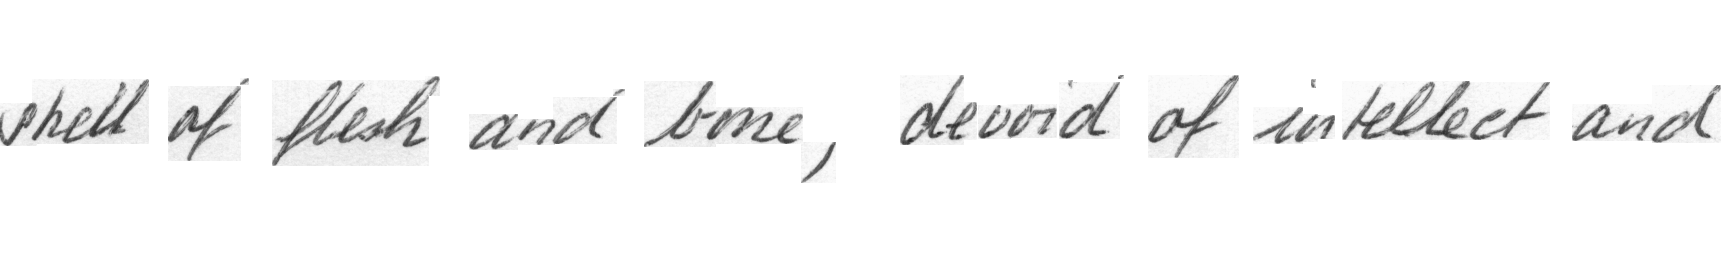 shell of flesh and bone, devoid of intellect and